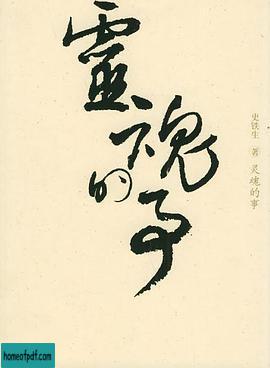 靈魂的事
史铁生 著 灵魂的事
homeofpdf.com